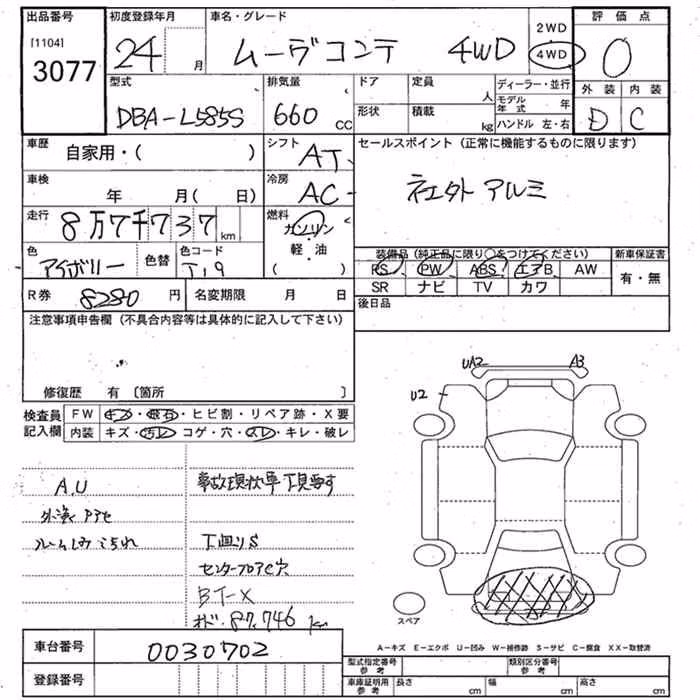 出品番号
[1104]
3077
初度登録年月
24 月
車名・グレード
ムーヴコンテ 4WD
2WD
4WD
評価点
0
外装 内装
D C
型式
DBA-L585S
排気量
660 cc
ドア 定員
人
形状 積載
kg
ディーラー・並行
モデル年式 年
ハンドル 左・右
車歴
自家用・( )
シフト
AT
セールスポイント (正常に機能するものに限ります)
社外アルミ
車検
年 月( 日)
冷房
AC
走行
8万7千737 km
燃料
ガソリン
軽・油
( )
色
アイボリー
色替
色コード
T19
装備品 (純正品に限り〇をつけてください)
PS PW ABS エアB AW
SR ナビ TV カワ
新車保証書
有・無
R券 8280 円
名変期限 月 日
後日品
注意事項申告欄 (不具合内容等は具体的に記入して下さい)
修復歴 有 〔箇所 〕
検査員記入欄
FW キズ・飛石・ヒビ割・リペア跡・X要
内装 キズ・汚レ・コゲ・穴・スレ・キレ・破レ
A.U
外装
ルームしみ汚れ
事故現状車
下回りS
センターフロアC穴
BT-X
オド、87,746 km
UA2
A3
U2
スペア
A-キズ E-エクボ U-凹み W-補修跡 S-サビ C-腐食 XX-取替済
車台番号 0030702
登録番号
型式指定番号 参考
類別区分番号 参考
車庫証明用 参考
長さ cm
幅 cm
高さ cm